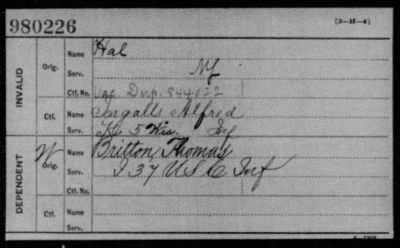 980226
(3-1E-4)
INVALID
Orig.
Name Hal
Serv. NY
Ctf. No. Dup. 844032
Ctf.
Name Ingalls Alfred
Serv. K. 5 Wis. Inf
DEPENDENT
W
Orig.
Name Britton, Thomas
Serv. I 37 U S C Inf
Ctf. No.
Ctf.
Name
Serv.